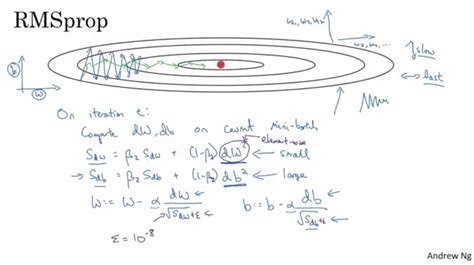 RMSprop
w₁, w₂, w₃
w₃, w₄, ...
slow
fast
b
w
On iteration t:
Compute dW, db on current mini-batch
element-wise
S_dw = β₂ S_dw + (1-β₂) dW² ← small
→ S_db = β₂ S_db + (1-β₂) db² ← large
W := W - α dW/√(S_dw+ε) b := b - α db/√(S_db+ε)
ε = 10⁻⁸
Andrew Ng